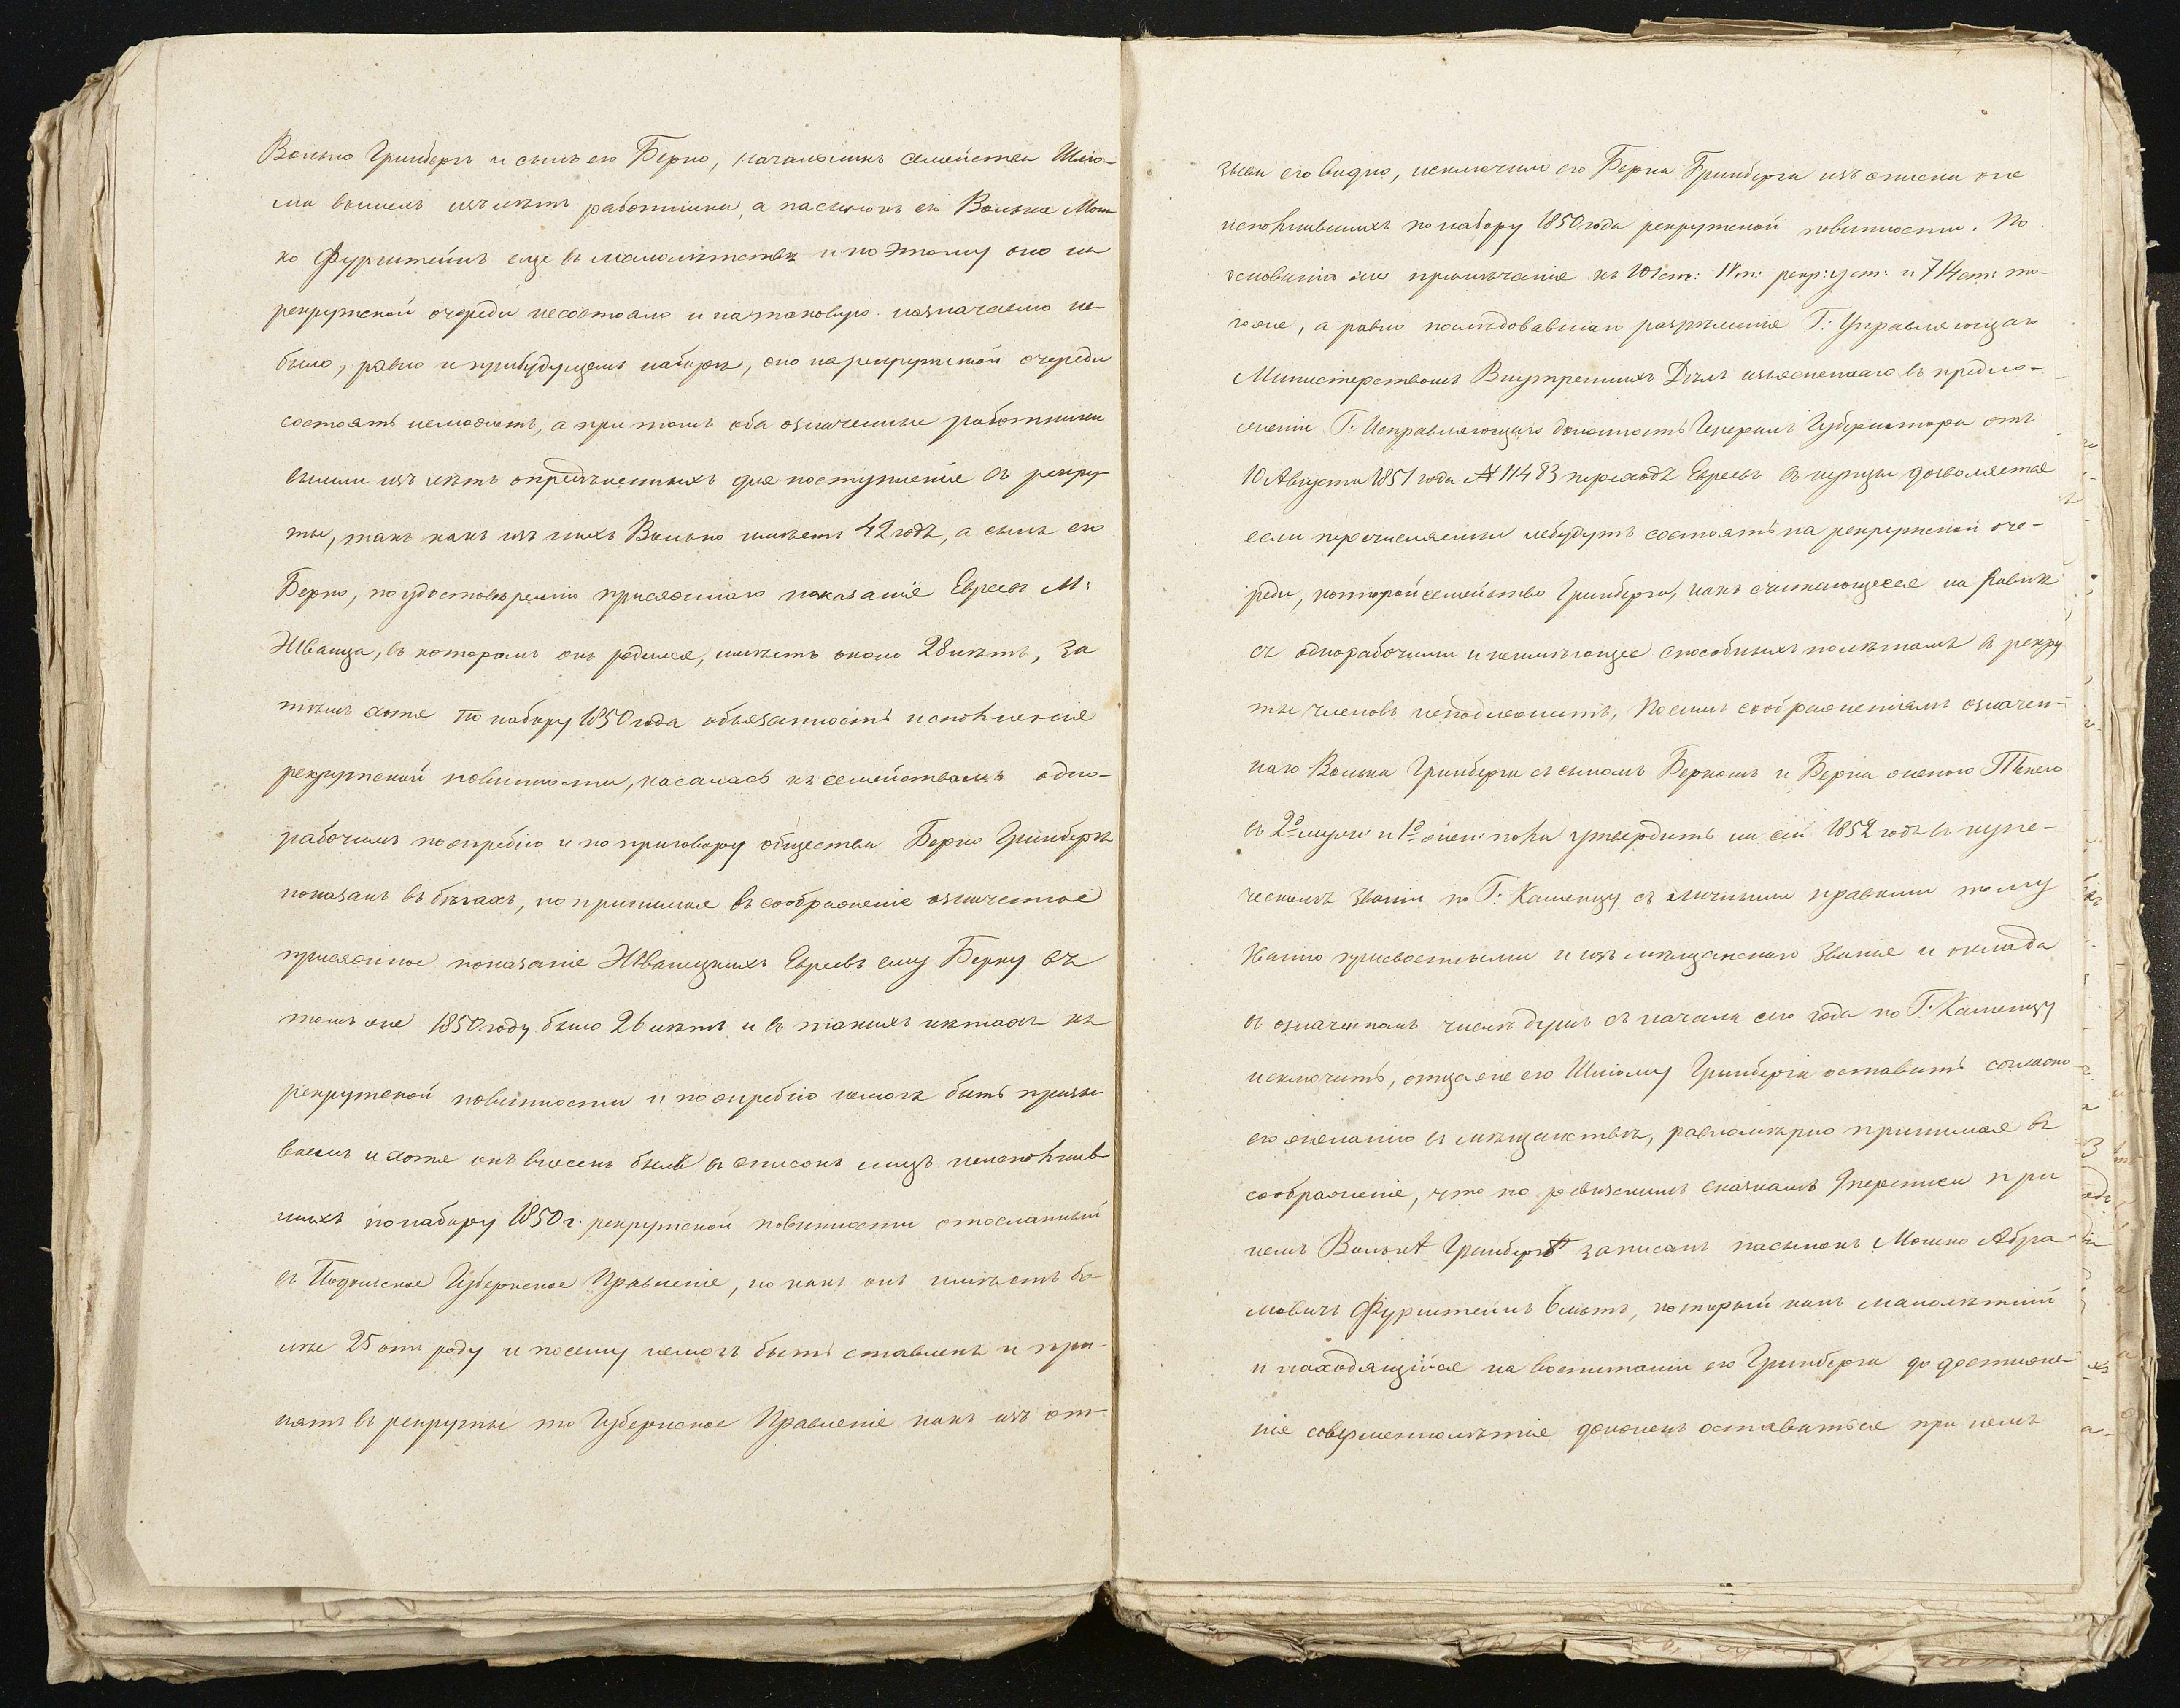 Волько Гринбергъ и сынъ его Берко, начальникъ семейства Шлю-
ма вышелъ изъ лѣтъ работника, а пасынокъ его Волька Мош-
ко Фурштейнъ еще въ малолѣтствѣ и по этому оно на
рекрутской очереди несостояло и натаковую назначаемо не-
было, равно и прибудущемъ наборѣ, оно нарекрутской очереди
состоять неможетъ, а при томъ оба означенные работники
вышли изъ лѣтъ опредѣленныхъ для поступленія въ рекру-
ты, такъ какъ изъ нихъ Волько имѣетъ 42 годъ, а сынъ его
Берко, по удостовѣренію присяжнаго показанія Евреевъ М:
Жванца, въ которомъ онъ родился, имѣетъ около 28 лѣтъ, За
тѣмъ хотя по набору 1850 года обязанность исполненія
рекрутской повинности, касалась къ семействамъ одно-
рабочимъ пожребію и по приговору общества Берко Гринбергъ
показанъ въ бѣгахъ, но принимая въ соображеніе означенное
присяжное показаніе Жванецкихъ Евреевъ ему Берку въ
томъ же 1850 году было 26 лѣтъ и въ такихъ лѣтахъ къ
рекрутской повинности и пожребію немогъ быть призы-
ваемъ и хотя онъ внесенъ былъ въ списокъ лицъ неисполнив-
шихъ понабору 1850 г. рекрутской повинности отосланный
въ Подольское Губернское Правленіе, но какъ онъ имѣетъ бо-
лѣе 25 отъ роду и посему немогъ быть ставленъ и при-
нятъ въ рекруты то Губернское Правленіе какъ изъ от-
зыва его видно, исключило его Берка Гринберга изъ списка не
исполнившихъ понабору 1850 года рекрутской повинности. По
основанію же примѣчанія къ 101 ст: IV т: рекр: уст: и 714 ст: то-
гоже, а равно послѣдовавшаго разрѣшенія Г: Управляющаго
Министерствомъ Внутреннихъ Дѣлъ изъясненнаго въ предло-
женіи Г: Исправляющаго должность Генералъ Губернатора отъ
10 Августа 1851 года № 11483 переходъ Евреевъ въ купцы дозволяется
если перечисляемые небудутъ состоять на рекрутской оче-
реди, которой семейство Гринберга, какъ считающееся на равнѣ
съ однорабочими и неимѣющее способныхъ полѣтамъ въ рекру
ты членовъ неподлежитъ, По симъ соображеніямъ означен-
наго Волька Гринберга съ сыномъ Беркомъ и Берка женою
въ 2о муж: и 1о жен: пола утвердить на сей 1852 годъ въ купе-
ческомъ званіи по Г: Каменцу съ личными правами тому
званію присвоенными и изъ мѣщанскаго званія и оклада
въ означенномъ числѣ душъ съ начала сего года по Г: Каменцу
исключить, отца же его Шлюму Гринберга оставить согласно
его желанію въ мѣщанствѣ, равномѣрно принимая въ
соображеніе, что по ревизскимъ сказкамъ 9 переписи при
немъ Волькѣ Гринбергѣ записанъ пасынокъ Мошко Абра-
мовичъ Фурштейнъ 6 лѣтъ, который какъ малолѣтній
и находящійся на воспитаніи его Гринберга до достиже-
нія совершеннолѣтія долженъ оставаться при немъ